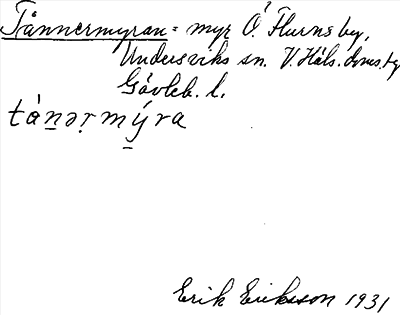 Tånnermyran = myr Ö. Flurns by,
Undersviks sn. V. Häls. doms.
Gävleb. l.
tánərmýra
Erik Eriksson 1931